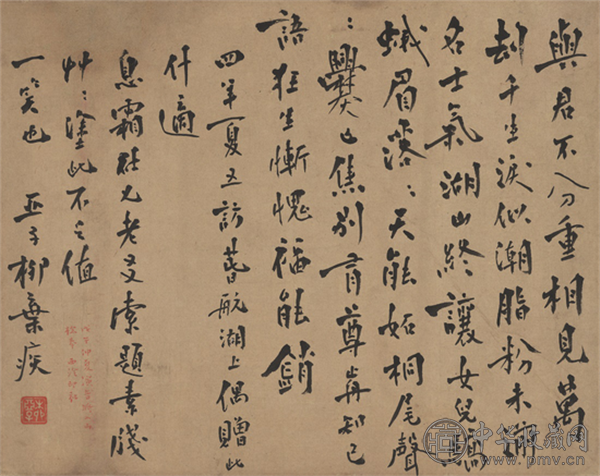 與君不分重相見萬
劫千生淚似潮脂粉未除
名士氣湖山終讓女兒驕
蛾眉落：天能妬桐尾聲
：爨已焦別有尊前知己
語狂生慚愧福能銷
四年夏五訪萅航湖上偶贈此
什適
息霜社兄老友索題素牋
艸：塗此不足值
一笑也 亞子柳棄疾
中华收藏网
www.pmv.cn